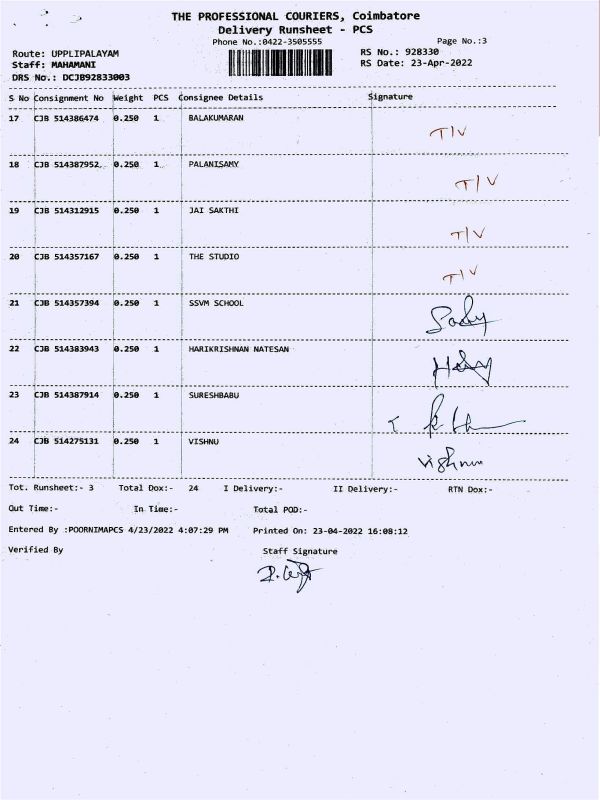 THE PROFESSIONAL COURIERS, Coimbatore
Delivery Runsheet - PCS
Phone No.:0422-3505555 Page No.:3
Route: UPPLIPALAYAM RS No.: 928330
Staff: MAHAMANI RS Date: 23-Apr-2022
DRS No.: DCJB92833003
S No Consignment No Weight PCS Consignee Details Signature
17 CJB 514386474 0.250 1 BALAKUMARAN T/V
18 CJB 514387952 0.250 1 PALANISAMY T/V
19 CJB 514312915 0.250 1 JAI SAKTHI T/V
20 CJB 514357167 0.250 1 THE STUDIO T/V
21 CJB 514357394 0.250 1 SSVM SCHOOL
22 CJB 514383943 0.250 1 HARIKRISHNAN NATESAN
23 CJB 514387914 0.250 1 SURESHBABU
24 CJB 514275131 0.250 1 VISHNU Vishnu
Tot. Runsheet:- 3 Total Dox:- 24 I Delivery:- II Delivery:- RTN Dox:-
Out Time:- In Time:- Total POD:-
Entered By :POORNIMAPCS 4/23/2022 4:07:29 PM Printed On: 23-04-2022 16:08:12
Verified By Staff Signature